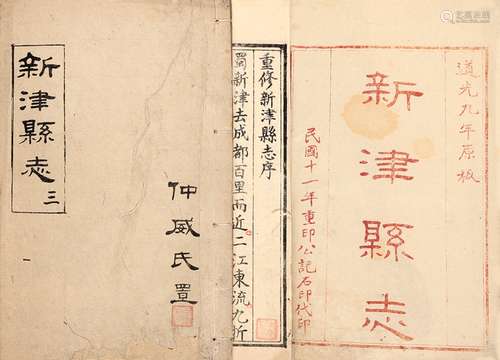 道光九年原板
新津縣志
民國十一年重印公記石印代印
重修新津縣志序
蜀新津去成都百里而近二江東流九折
新津縣志 三
仲威氏置